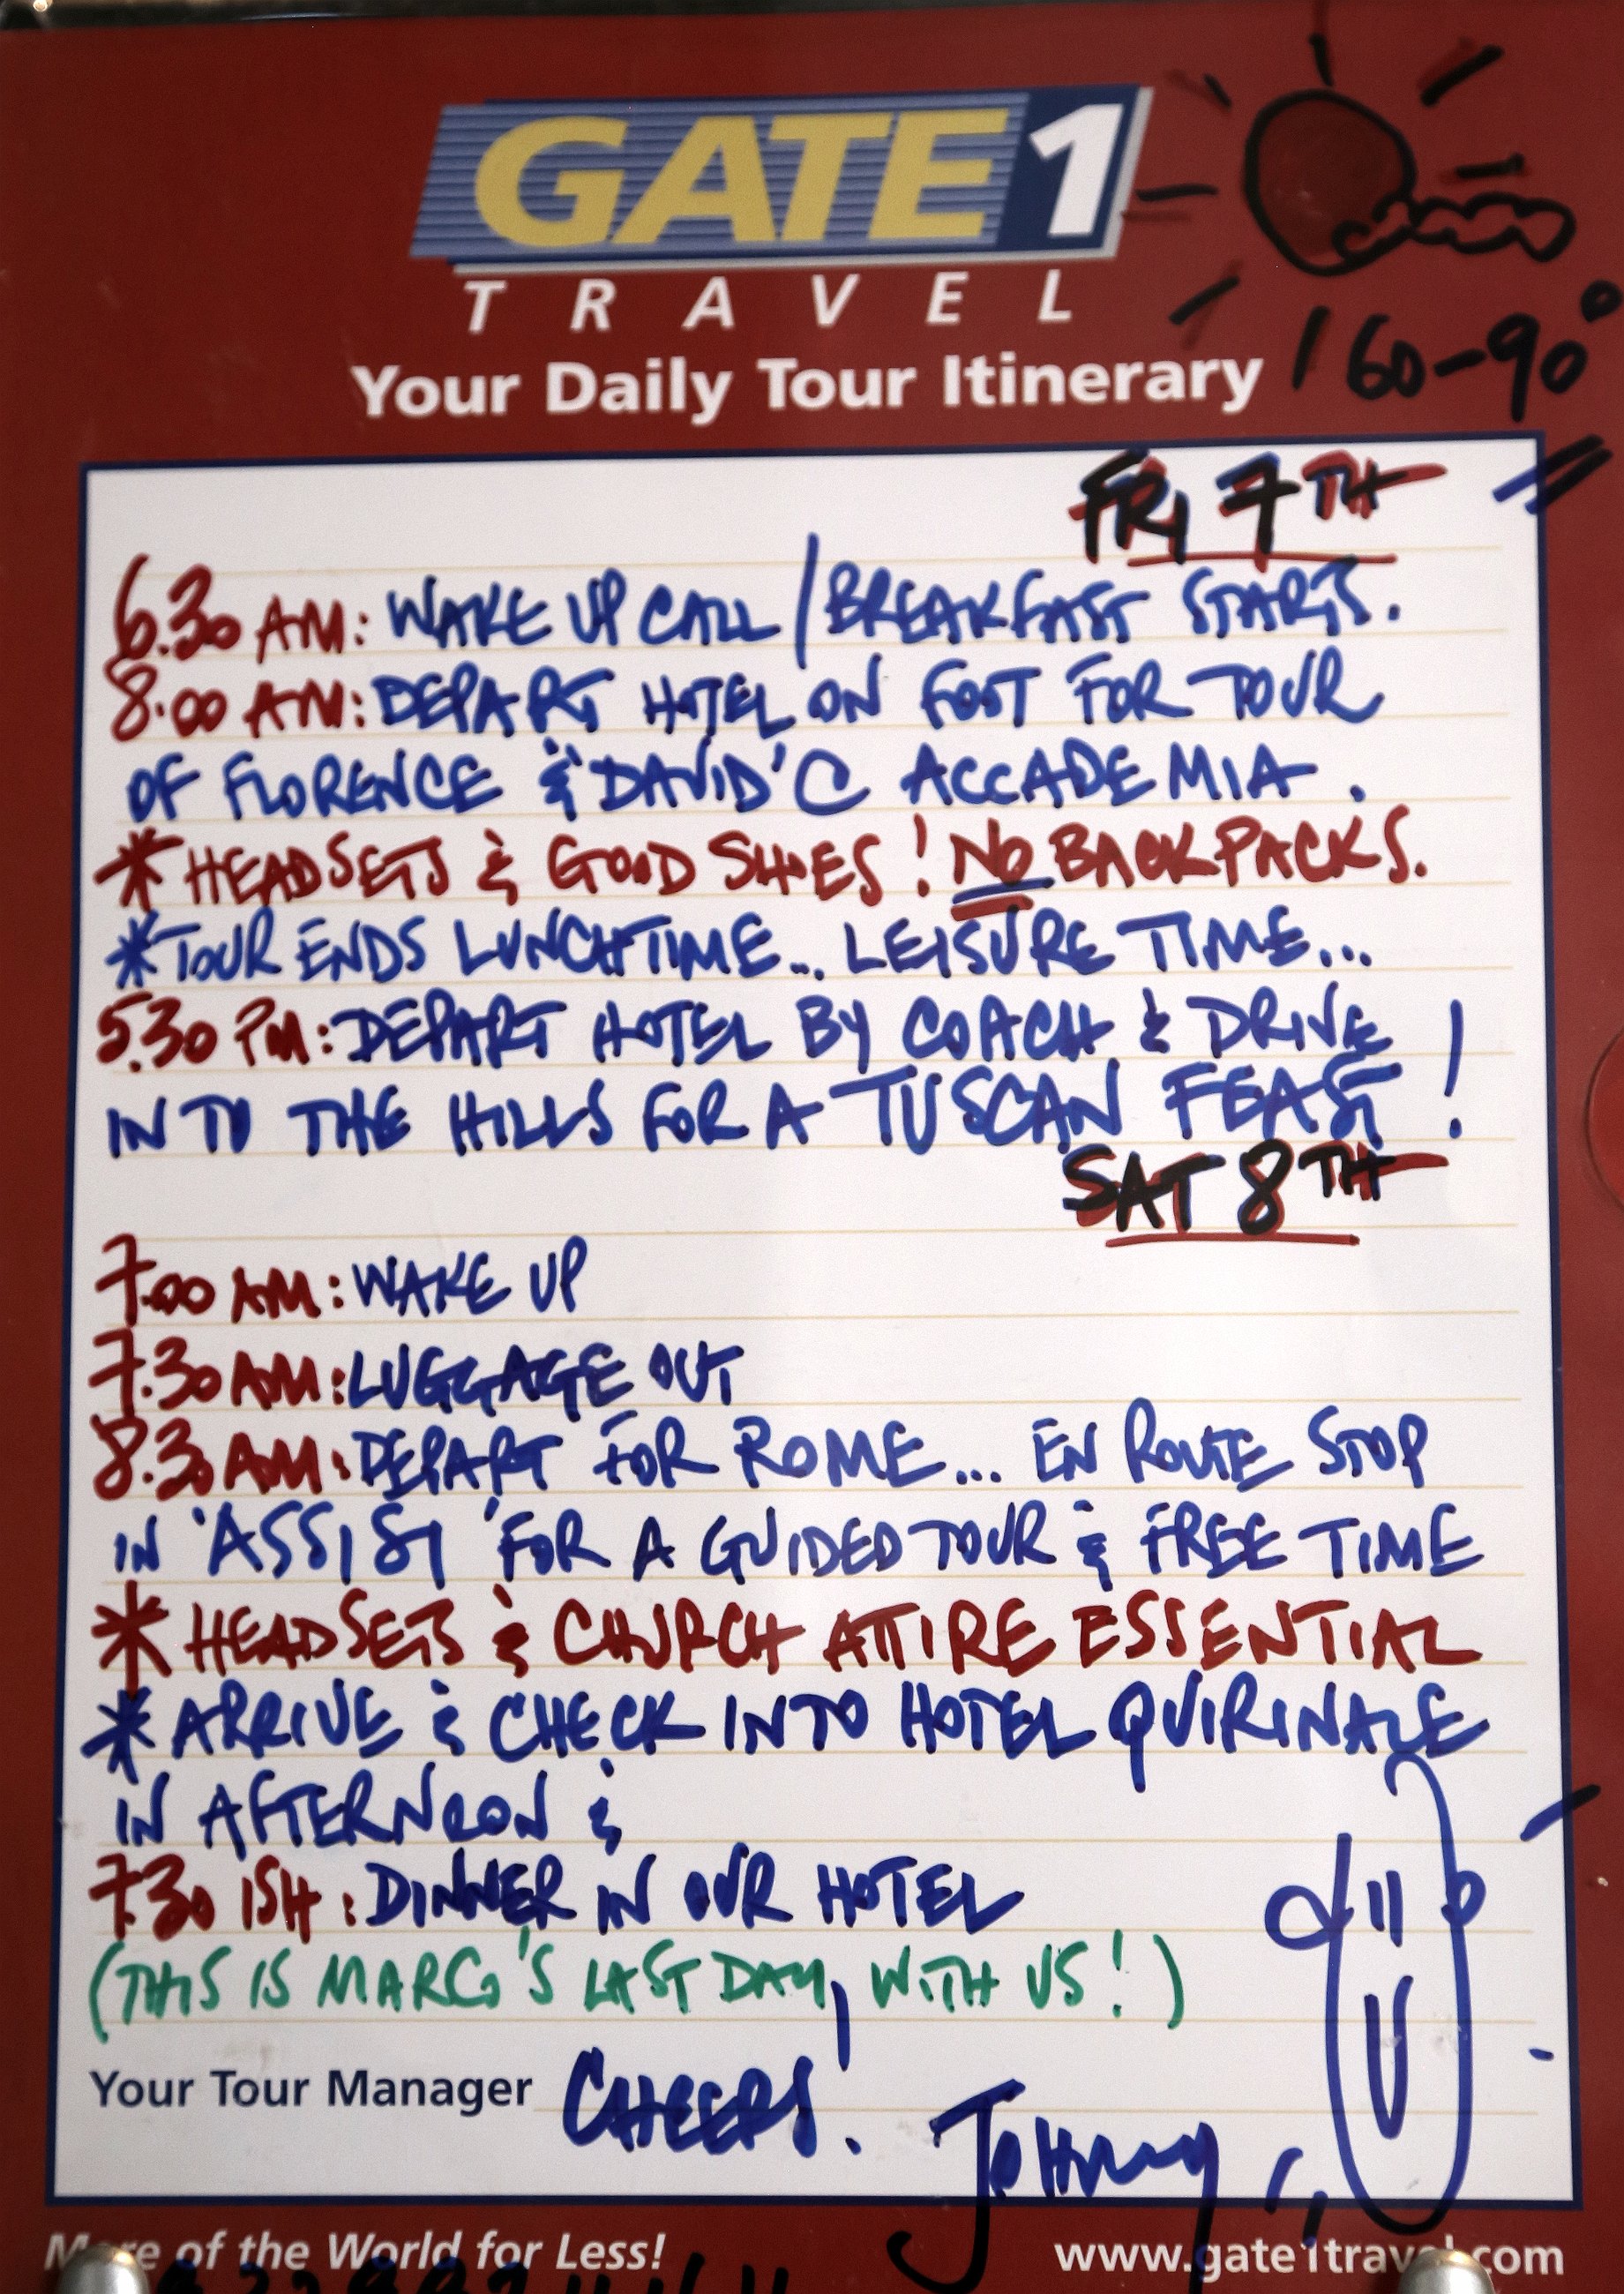 GATE 1
TRAVEL
Your Daily Tour Itinerary
60-90°
FRI 7TH
6.30 AM: WAKE UP CALL / BREAKFAST STARTS.
8.00 AM: DEPART HOTEL ON FOOT FOR TOUR
OF FLORENCE & "DAVID" C ACCADEMIA.
* HEADSETS & GOOD SHOES! NO BACKPACKS.
* TOUR ENDS LUNCHTIME... LEISURE TIME...
5.30 PM: DEPART HOTEL BY COACH & DRIVE
INTO THE HILLS FOR A TUSCAN FEAST!
SAT 8TH
7.00 AM: WAKE UP
7.30 AM: LUGGAGE OUT
8.30 AM: DEPART FOR ROME... EN ROUTE STOP
IN 'ASSISI' FOR A GUIDED TOUR & FREE TIME
* HEADSETS & CHURCH ATTIRE ESSENTIAL
* ARRIVE & CHECK INTO HOTEL QUIRINALE
IN AFTERNOON &
7.30 ISH: DINNER IN OUR HOTEL
(THIS IS MARCO'S LAST DAY, WITH US!)
Your Tour Manager CHEERS! Johnny
More of the World for Less! www.gate1travel.com